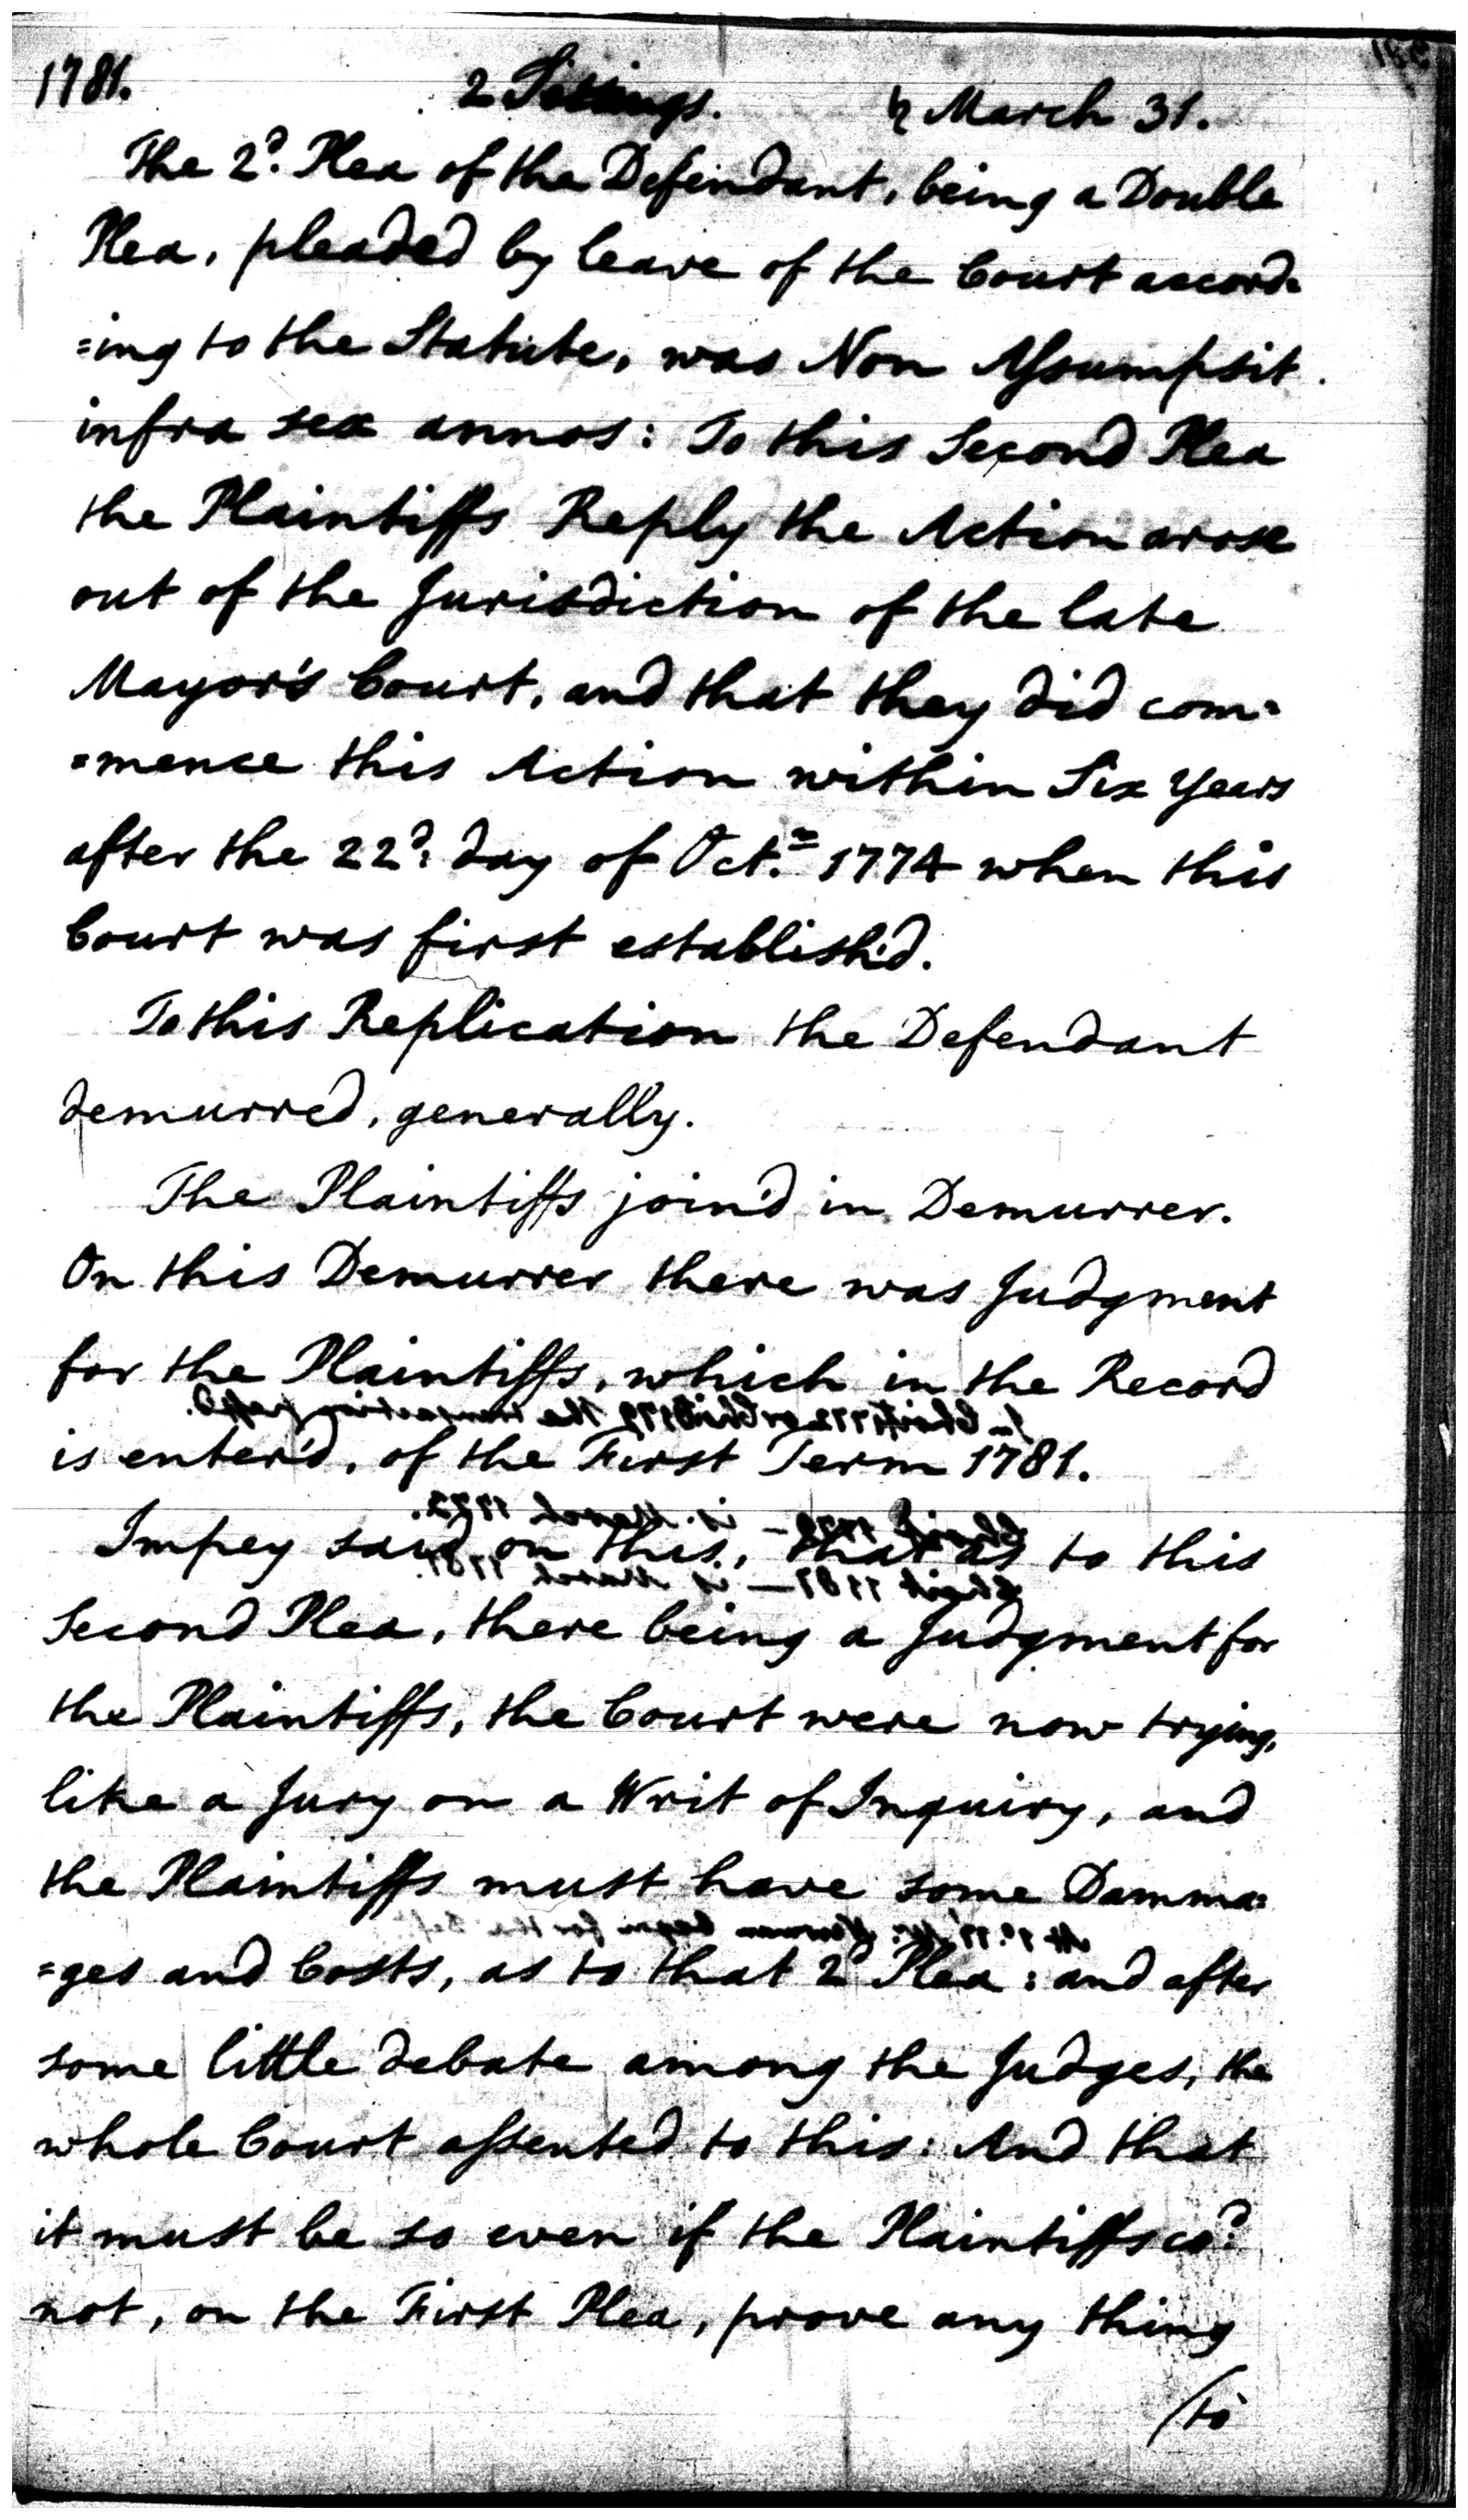 1781. 2 Sittings. ♄ March 31.
The 2d. Plea of the Defendant, being a Double
Plea, pleaded by leave of the Court accord=
=ing to the Statute, was Non Assumpsit
infra sex annos: To this Second Plea
the Plaintiffs Reply the Action arose
out of the Jurisdiction of the late
Mayor's Court, and that they did com=
=mence this Action within Six Years
after the 22d: day of Oct.r 1774 when this
Court was first establish'd.
To this Replication the Defendant
demurred, generally.
The Plaintiffs join'd in Demurrer.
On this Demurrer there was Judgment
for the Plaintiffs, which in the Record
is enter'd, of the First Term 1781.
Impey said on this, that as to this
Second Plea, there being a Judgment for
the Plaintiffs, the Court were now trying,
like a Jury on a Writ of Inquiry, and
the Plaintiffs must have some Damma=
=ges and Costs, as to that 2d Plea: and after
some little debate among the Judges, the
whole Court assented to this: And that
it must be so even if the Plaintiffs cod.
not, on the First Plea, prove any thing
/to